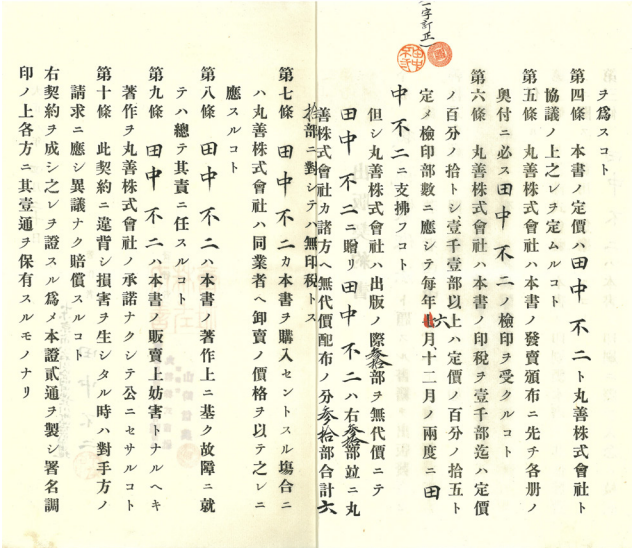 一字訂正
ヲ爲スコト
第四條 本書ノ定價ハ田中不二ト丸善株式會社ト
協議ノ上之レヲ定ムルコト
第五條 丸善株式會社ハ本書ノ發賣頒布ニ先チ各册ノ
奥付ニ必ス田中不二ノ檢印ヲ受クルコト
第六條 丸善株式會社ハ本書ノ印税ヲ壹千部迄ハ定價
ノ百分ノ拾トシ、壹千壹部以上ハ定價ノ百分ノ拾五ト
定メ檢印部數ニ應シテ毎年六月十二月ノ兩度ニ田
中不二ニ支拂フコト
但シ丸善株式會社ハ出版ノ際參拾部ヲ無代價ニテ
田中不二ニ贈リ田中不二ハ右參拾部竝ニ丸
善株式會社カ諸方ヘ無代價配布ノ分參拾部合計六
拾部ニ對シテハ無印税トス
第七條 田中不二カ本書ヲ購入セントスル塲合ニ
ハ丸善株式會社ハ同業者ヘ卸賣ノ價格ヲ以テ之レニ
應スルコト
第八條 田中不二ハ本書ノ著作上ニ基ク故障ニ就
テハ總テ其責ニ任スルコト
第九條 田中不二ハ本書ノ販賣上妨害トナルヘキ
著作ヲ丸善株式會社ノ承諾ナクシテ公ニセサルコト
第十條 此契約ニ違背シ損害ヲ生シタル時ハ對手方ノ
請求ニ應シ異議ナク賠償スルコト
右契約ヲ成シ之レヲ證スル爲メ本證貳通ヲ製シ署名調
印ノ上各方ニ其壹通ヲ保有スルモノナリ